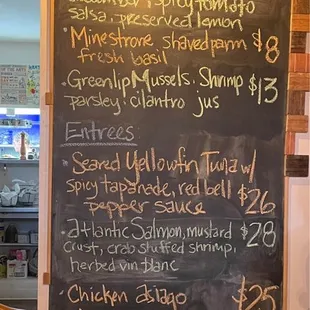 spicy tomato
salsa, preserved lemon
• Minestrone, shaved parm $8
fresh basil
• Greenlip Mussels. Shrimp $13
parsley. cilantro jus
Entrees
• Seared Yellowfin Tuna w/
spicy tapanade, red bell $26
pepper sauce
• atlantic Salmon, mustard $28
crust, crab stuffed shrimp,
herbed vin blanc
• Chicken asiago $25